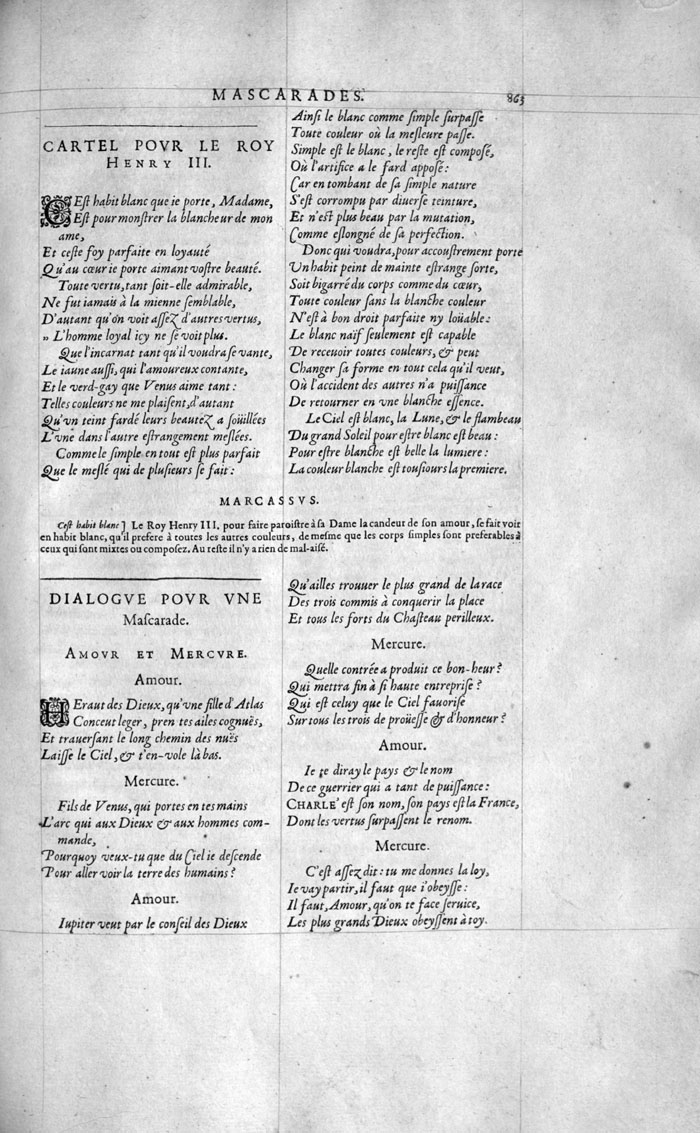 MASCARADES.
863
CARTEL POVR LE ROY
HENRY III.
CEst habit blanc que ie porte, Madame,
Est pour monstrer la blancheur de mon
ame,
Et ceste foy parfaite en loyauté
Qu'au cœur ie porte aimant vostre beauté.
Toute vertu, tant soit-elle admirable,
Ne fut iamais à la mienne semblable,
D'autant qu'on voit assez d'autres vertus,
„ L'homme loyal icy ne se voit plus.
Que l'incarnat tant qu'il voudra se vante,
Le iaune aussi, qui l'amoureux contante,
Et le verd-gay que Venus aime tant:
Telles couleurs ne me plaisent, d'autant
Qu'vn teint fardé leurs beautez a soüillées
L'vne dans l'autre estrangement meslées.
Comme le simple en tout est plus parfait
Que le meslé qui de plusieurs se fait:
Ainsi le blanc comme simple surpasse
Toute couleur où la mesleure passe.
Simple est le blanc, le reste est composé,
Où l'artifice a le fard apposé:
Car en tombant de sa simple nature
S'est corrompu par diuerse teinture,
Et n'est plus beau par la mutation,
Comme eslongné de sa perfection.
Donc qui voudra, pour accoustrement porte
Vn habit peint de mainte estrange sorte,
Soit bigarré du corps comme du cœur,
Toute couleur sans la blanche couleur
N'est à bon droit parfaite ny loüable:
Le blanc naïf seulement est capable
De receuoir toutes couleurs, & peut
Changer sa forme en tout cela qu'il veut,
Où l'accident des autres n'a puissance
De retourner en vne blanche essence.
Le Ciel est blanc, la Lune, & le flambeau
Du grand Soleil pour estre blanc est beau:
Pour estre blanche est belle la lumiere:
La couleur blanche est tousiours la premiere.
MARCASSVS.
Cest habit blanc] Le Roy Henry III. pour faire paroistre à sa Dame la candeur de son amour, se fait voir
en habit blanc, qu'il prefere à toutes les autres couleurs, de mesme que les corps simples sont preferables à
ceux qui sont mixtes ou composez. Au reste il n'y a rien de mal-aisé.
DIALOGVE POVR VNE
Mascarade.
AMOVR ET MERCVRE.
Amour.
HEraut des Dieux, qu'vne fille d'Atlas
Conceut leger, pren tes ailes cognuës,
Et trauersant le long chemin des nuës
Laisse le Ciel, & t'en-vole là bas.
Mercure.
Fils de Venus, qui portes en tes mains
L'arc qui aux Dieux & aux hommes com-
mande,
Pourquoy veux-tu que du Ciel ie descende
Pour aller voir la terre des humains?
Amour.
Iupiter veut par le conseil des Dieux
Qu'ailles trouuer le plus grand de la race
Des trois commis à conquerir la place
Et tous les forts du Chasteau perilleux.
Mercure.
Quelle contrée a produit ce bon-heur?
Qui mettra fin à si haute entreprise?
Qui est celuy que le Ciel fauorise
Sur tous les trois de proüesse & d'honneur?
Amour.
Ie te diray le pays & le nom
De ce guerrier qui a tant de puissance:
CHARLE' est son nom, son pays est la France,
Dont les vertus surpassent le renom.
Mercure.
C'est assez dit: tu me donnes la loy,
Ie vay partir, il faut que i'obeysse:
Il faut, Amour, qu'on te face seruice,
Les plus grands Dieux obeyssent à toy.